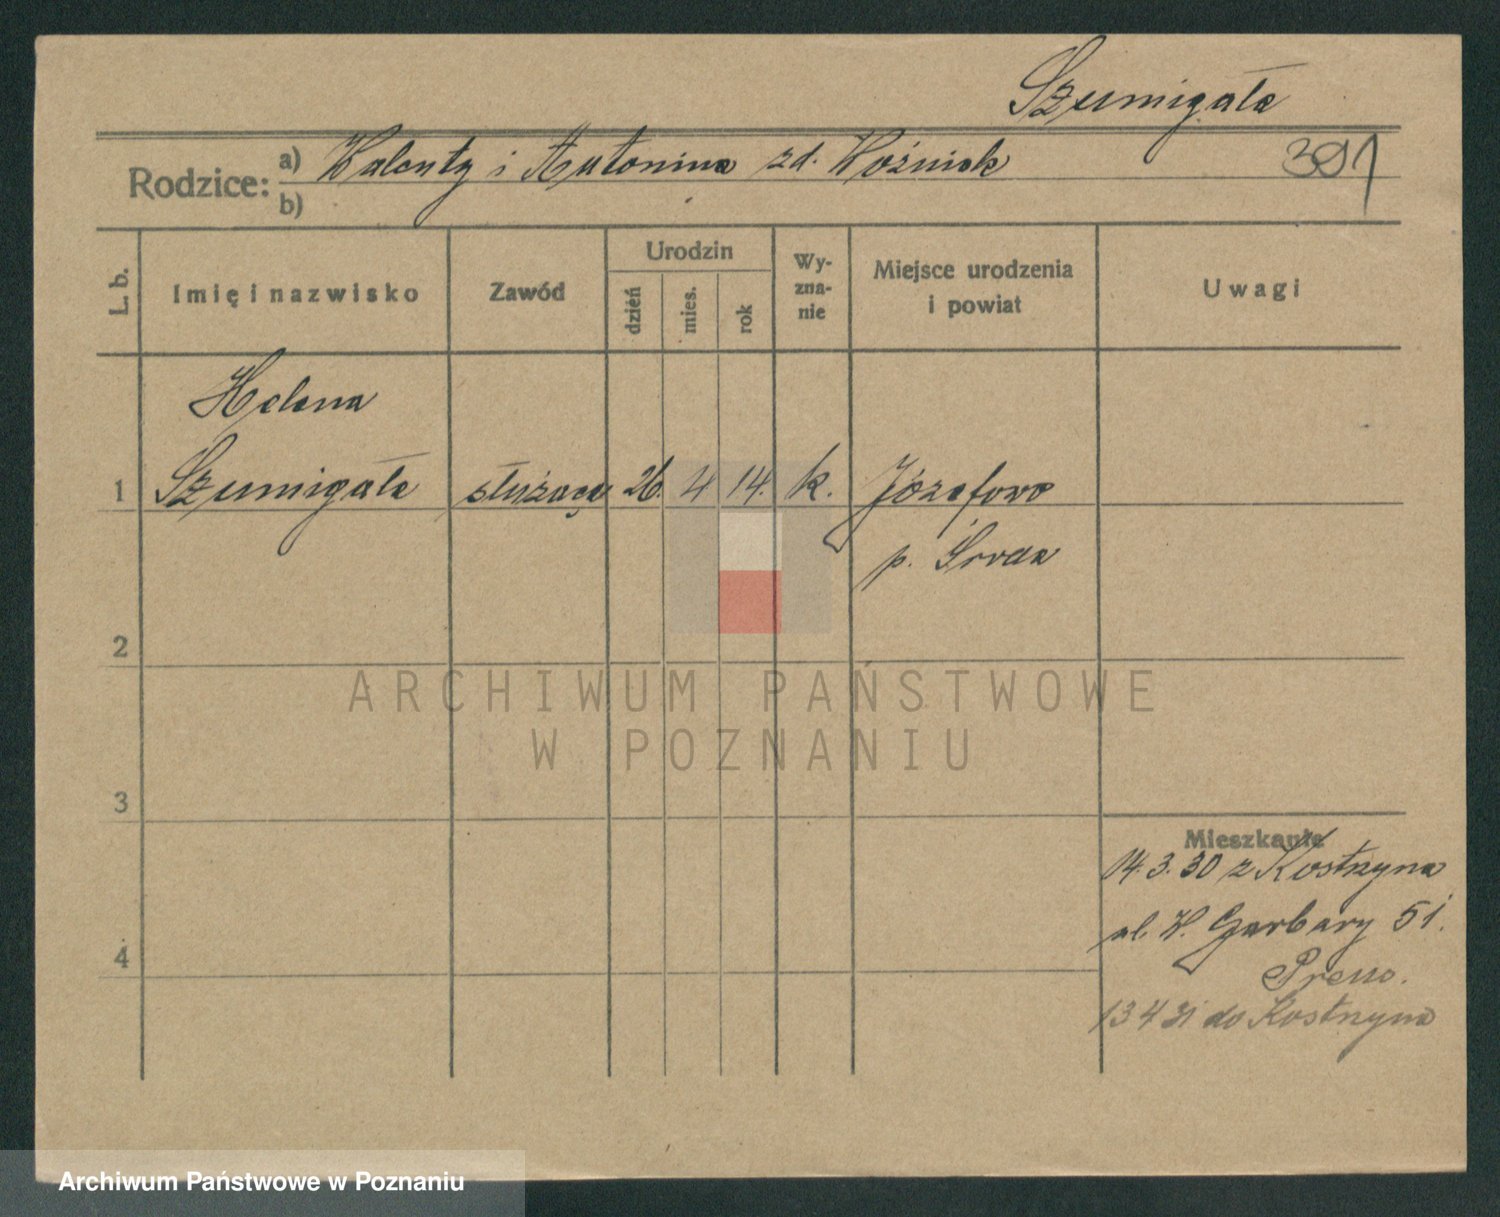 Szumigała
Rodzice: a) Walenty i Antonina zd. Woźniak 391
b)
L. b. Imię i nazwisko Zawód Urodzin dzień mies. rok Wyznanie Miejsce urodzenia i powiat Uwagi
Helena
1 Szumigała służąca 26. 4 14. k. Józefowo
p. Środa
2
ARCHIWUM PAŃSTWOWE
W POZNANIU
3
Mieszkanie
14.3.30 z Kostrzyna
4 ul. W. Garbary 51.
13 4 31 do Kostrzyna
Archiwum Państwowe w Poznaniu